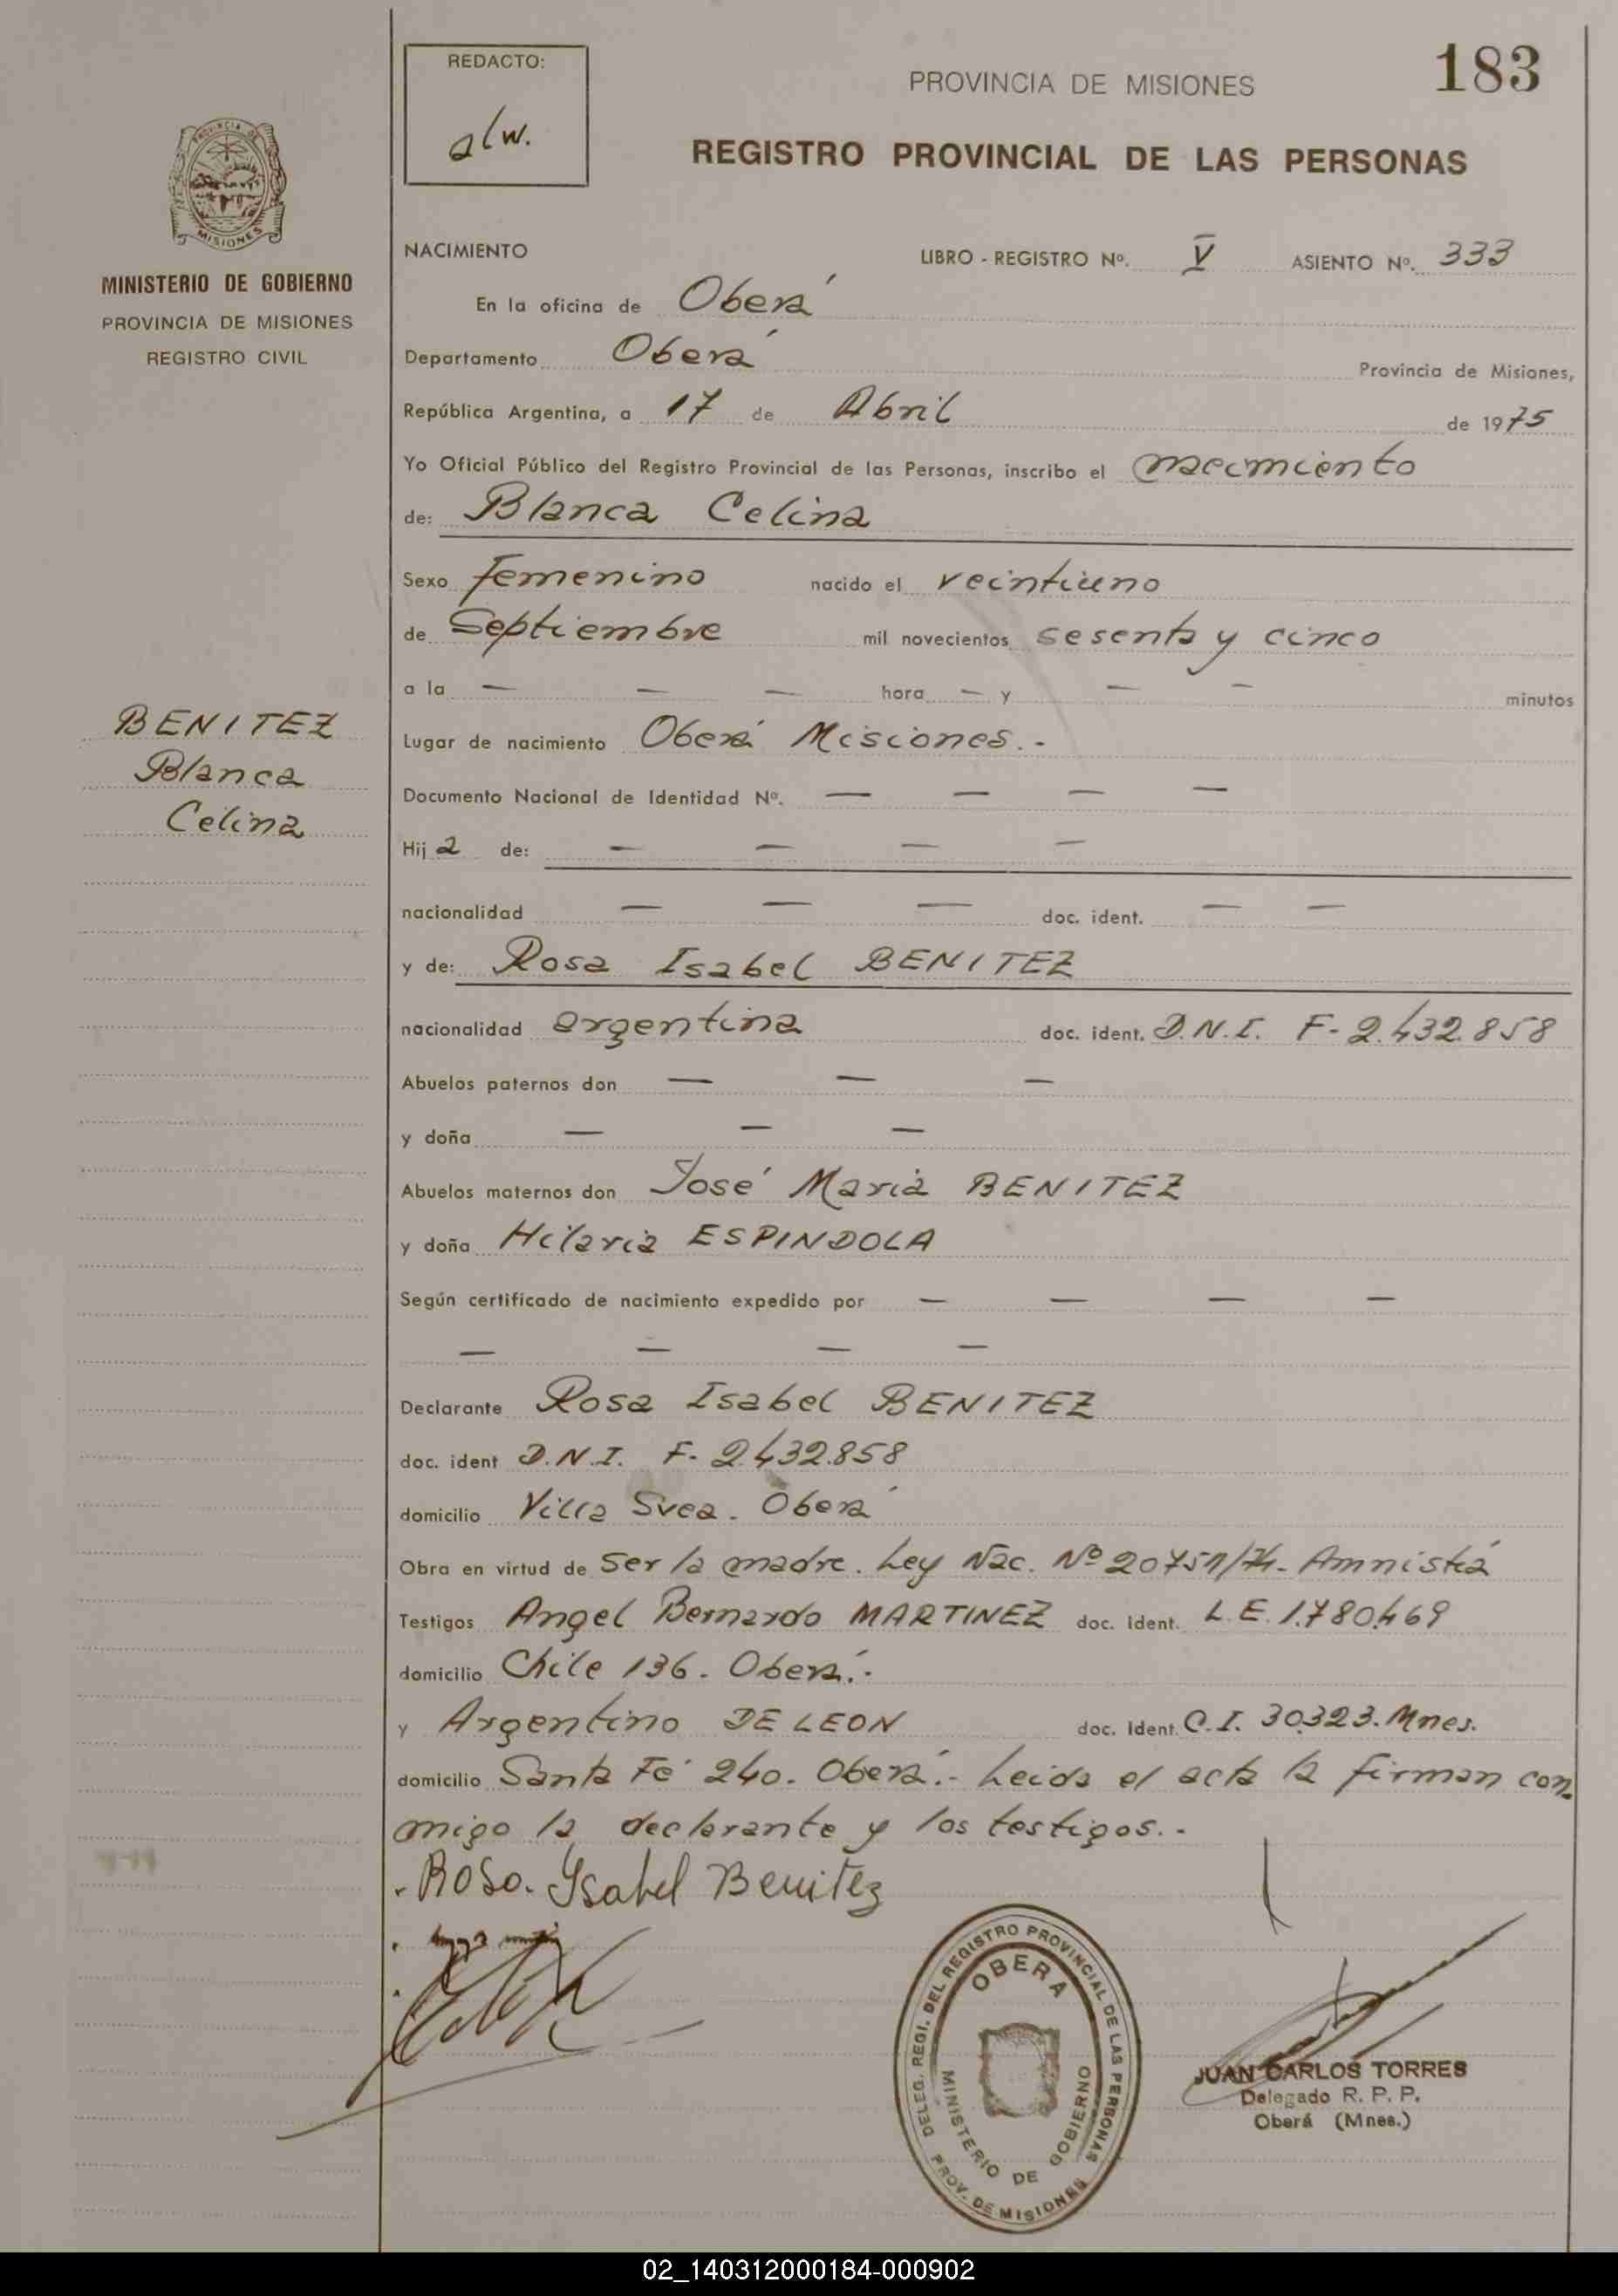 183
REDACTO:
alw.
PROVINCIA DE MISIONES
REGISTRO PROVINCIAL DE LAS PERSONAS
PROVINCIA DE
MISIONES
MINISTERIO DE GOBIERNO
PROVINCIA DE MISIONES
REGISTRO CIVIL
NACIMIENTO LIBRO - REGISTRO Nº. V ASIENTO Nº. 333
En la oficina de Oberá
Departamento Oberá Provincia de Misiones,
República Argentina, a 17 de Abril de 1975
Yo Oficial Público del Registro Provincial de las Personas, inscribo el nacimiento
de: Blanca Celina
Sexo femenino nacido el veintiuno
de Septiembre mil novecientos sesenta y cinco
a la — — — hora — y — — minutos
BENITEZ
Blanca
Celina
Lugar de nacimiento Oberá Misiones.-
Documento Nacional de Identidad Nº. — — — —
Hija de: — — — —
nacionalidad — — — doc. ident. — —
y de: Rosa Isabel BENITEZ
nacionalidad argentina doc. ident. D.N.I. F- 2.432.858
Abuelos paternos don — — —
y doña — — —
Abuelos maternos don José Maria BENITEZ
y doña Hilaria ESPINDOLA
Según certificado de nacimiento expedido por — — — —
— — — —
Declarante Rosa Isabel BENITEZ
doc. ident D.N.I. F- 2.432.858
domicilio Villa Svea. Oberá
Obra en virtud de ser la madre. Ley Nac. Nº 20751/74- Amnistiá
Testigos Angel Bernardo MARTINEZ doc. ident. L.E. 1.780.469
domicilio Chile 136. Oberá.-
y Argentino DE LEON doc. Ident. C.I. 30.323. Mnes.
domicilio Santa Fé 240. Oberá.- Leida el acta la firman con
migo la declarante y los testigos.-
Rosa. Ysabel Benitez
DELEG. REGI. DEL REGISTRO PROVINCIAL DE LAS PERSONAS
OBERA
MINISTERIO DE GOBIERNO
PROV. DE MISIONES
JUAN CARLOS TORRES
Delegado R. P. P.
Oberá (Mnes.)
02_140312000184-000902